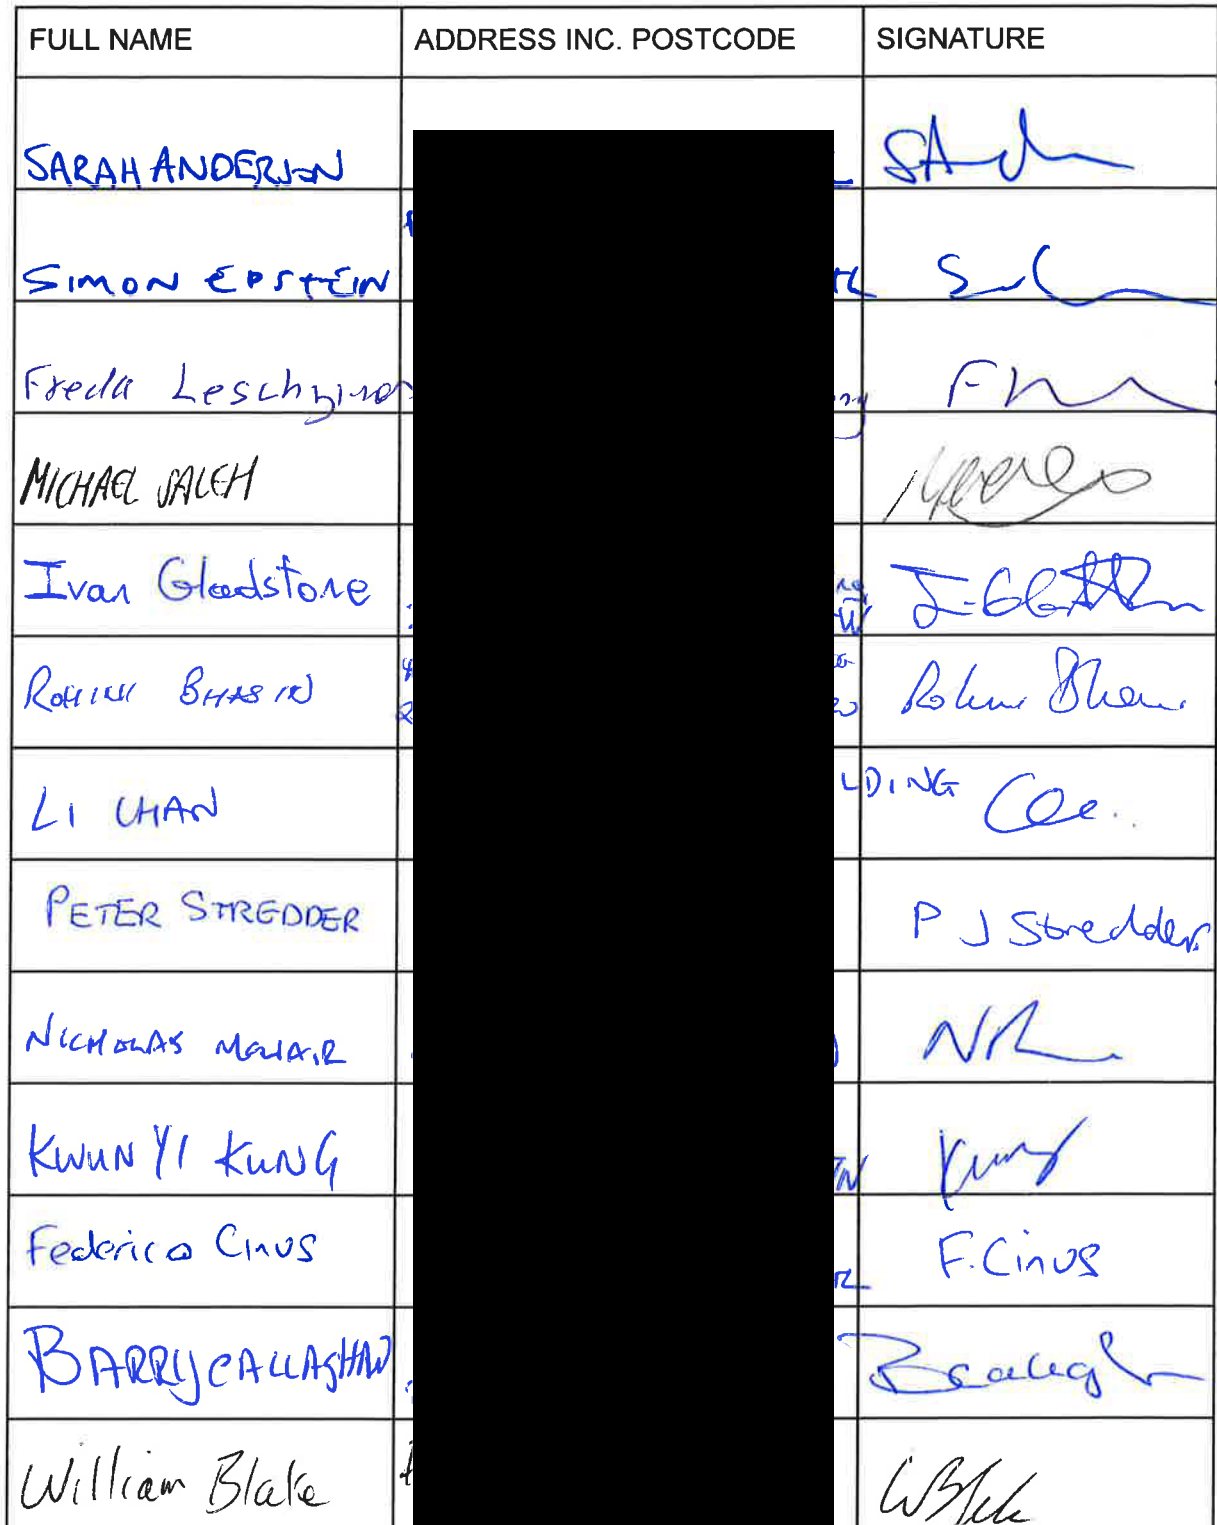 FULL NAME ADDRESS INC. POSTCODE SIGNATURE
SARAH ANDERSON
SIMON EPSTEIN
Freda
MICHAEL SALEH
Ivan Gladstone
ROHINI BHASIN
LI CHAN LDING
PETER STREDDER P J Stredder
NICHOLAS MCNAIR
KWUN YI KUNG Kung
Federico Cinus F. Cinus
BARRY CALLAGHAN
William Blake